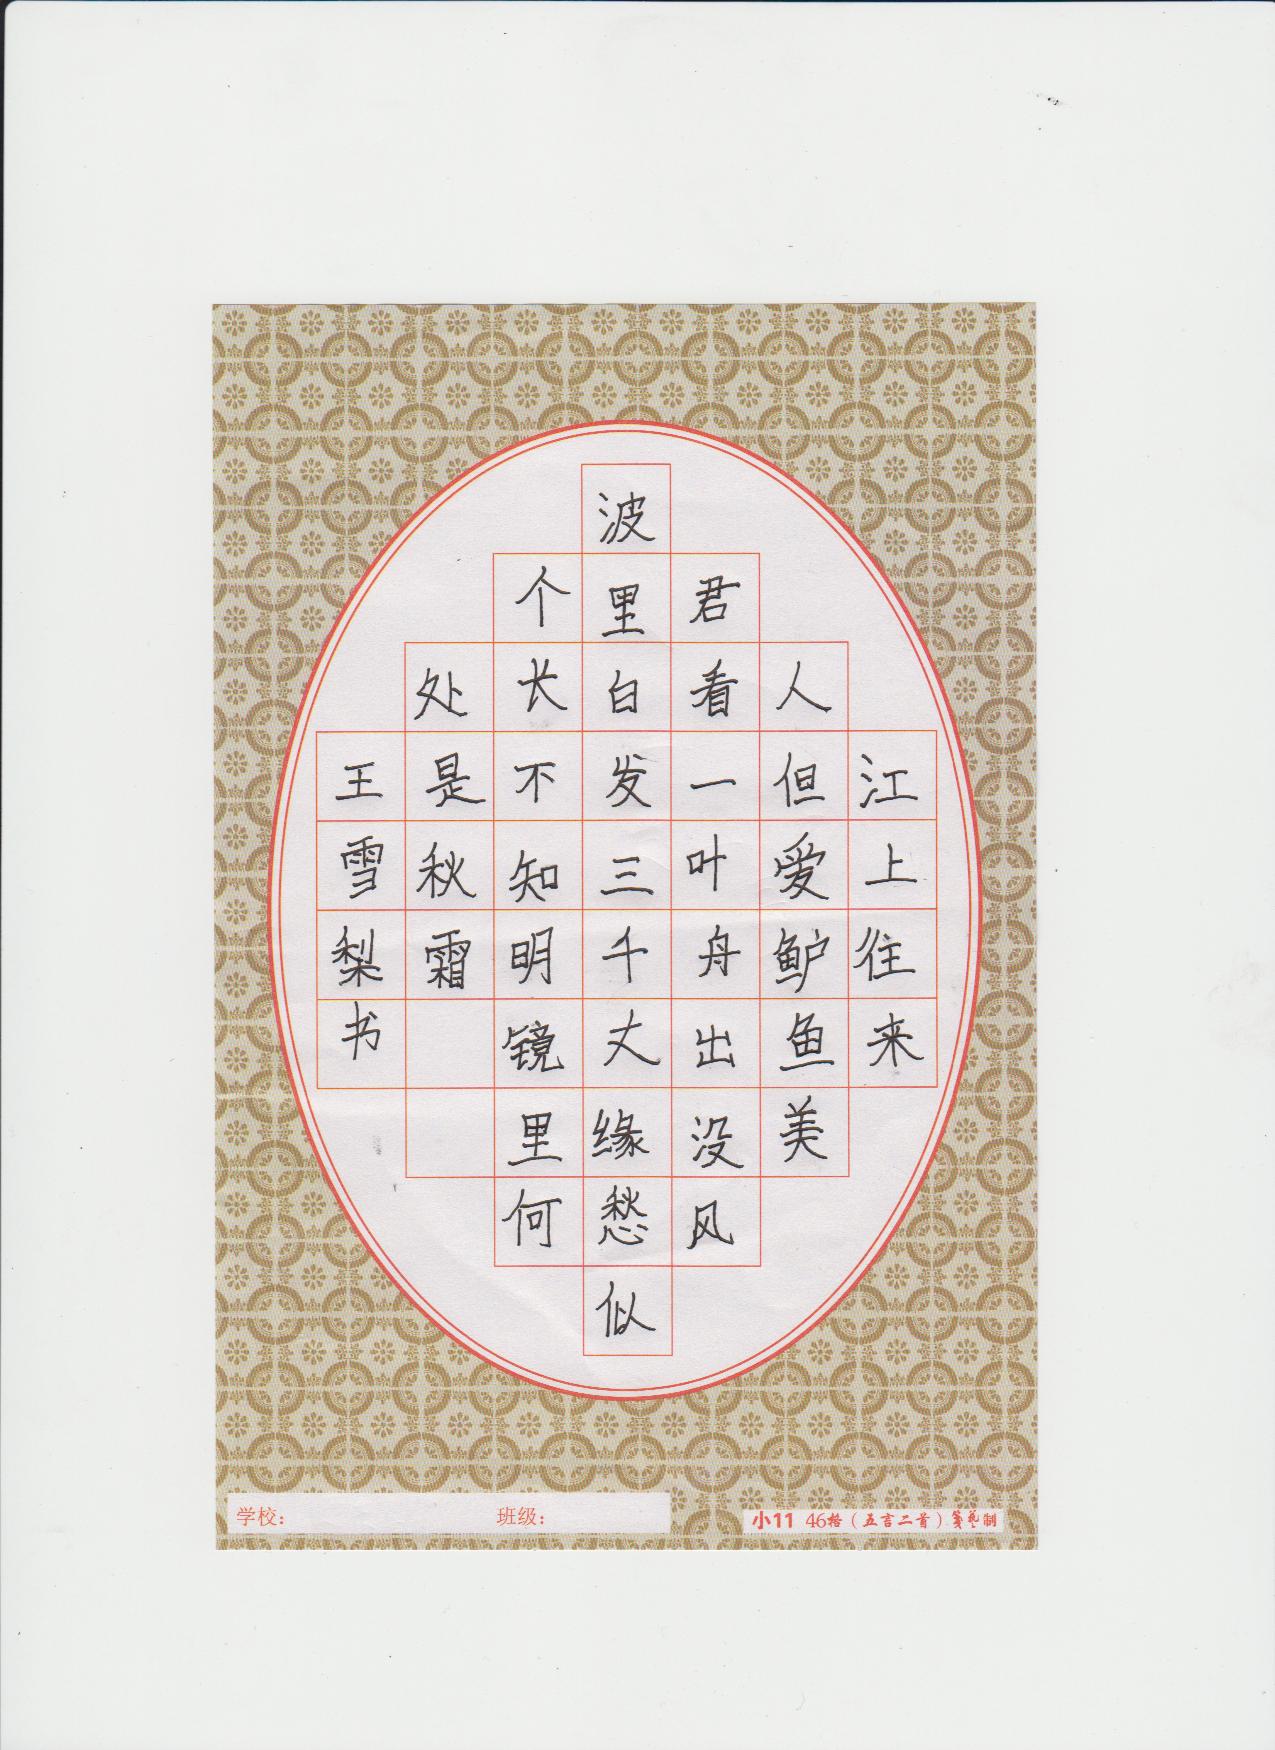 江上往来
人但爱鲈鱼美
君看一叶舟出没风
波里白发三千丈缘愁似
个长不知明镜里何
处是秋霜
王雪梨书
学校: 班级:
小11 46格（五言二首）笺艺制